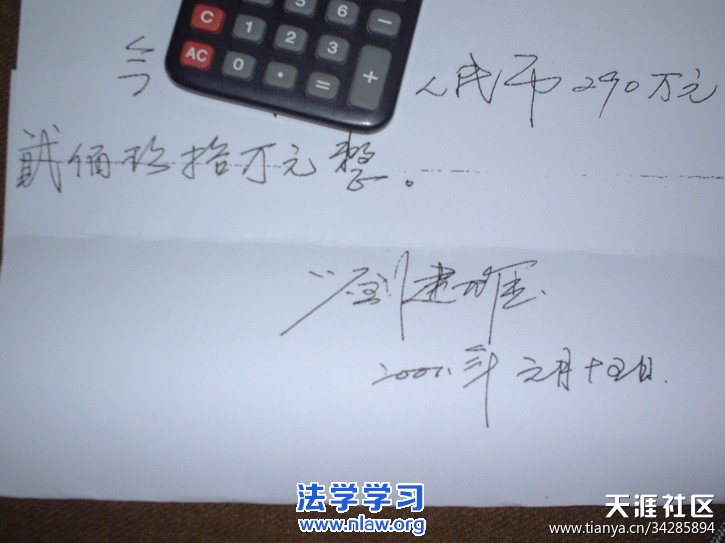 C 1 2 3
AC 0 . = +
5 6 −
今 人民币290万元
贰佰玖拾万元整。
元月十五日
法学学习
www.nlaw.org
天涯社区
www.tianya.cn/34285894